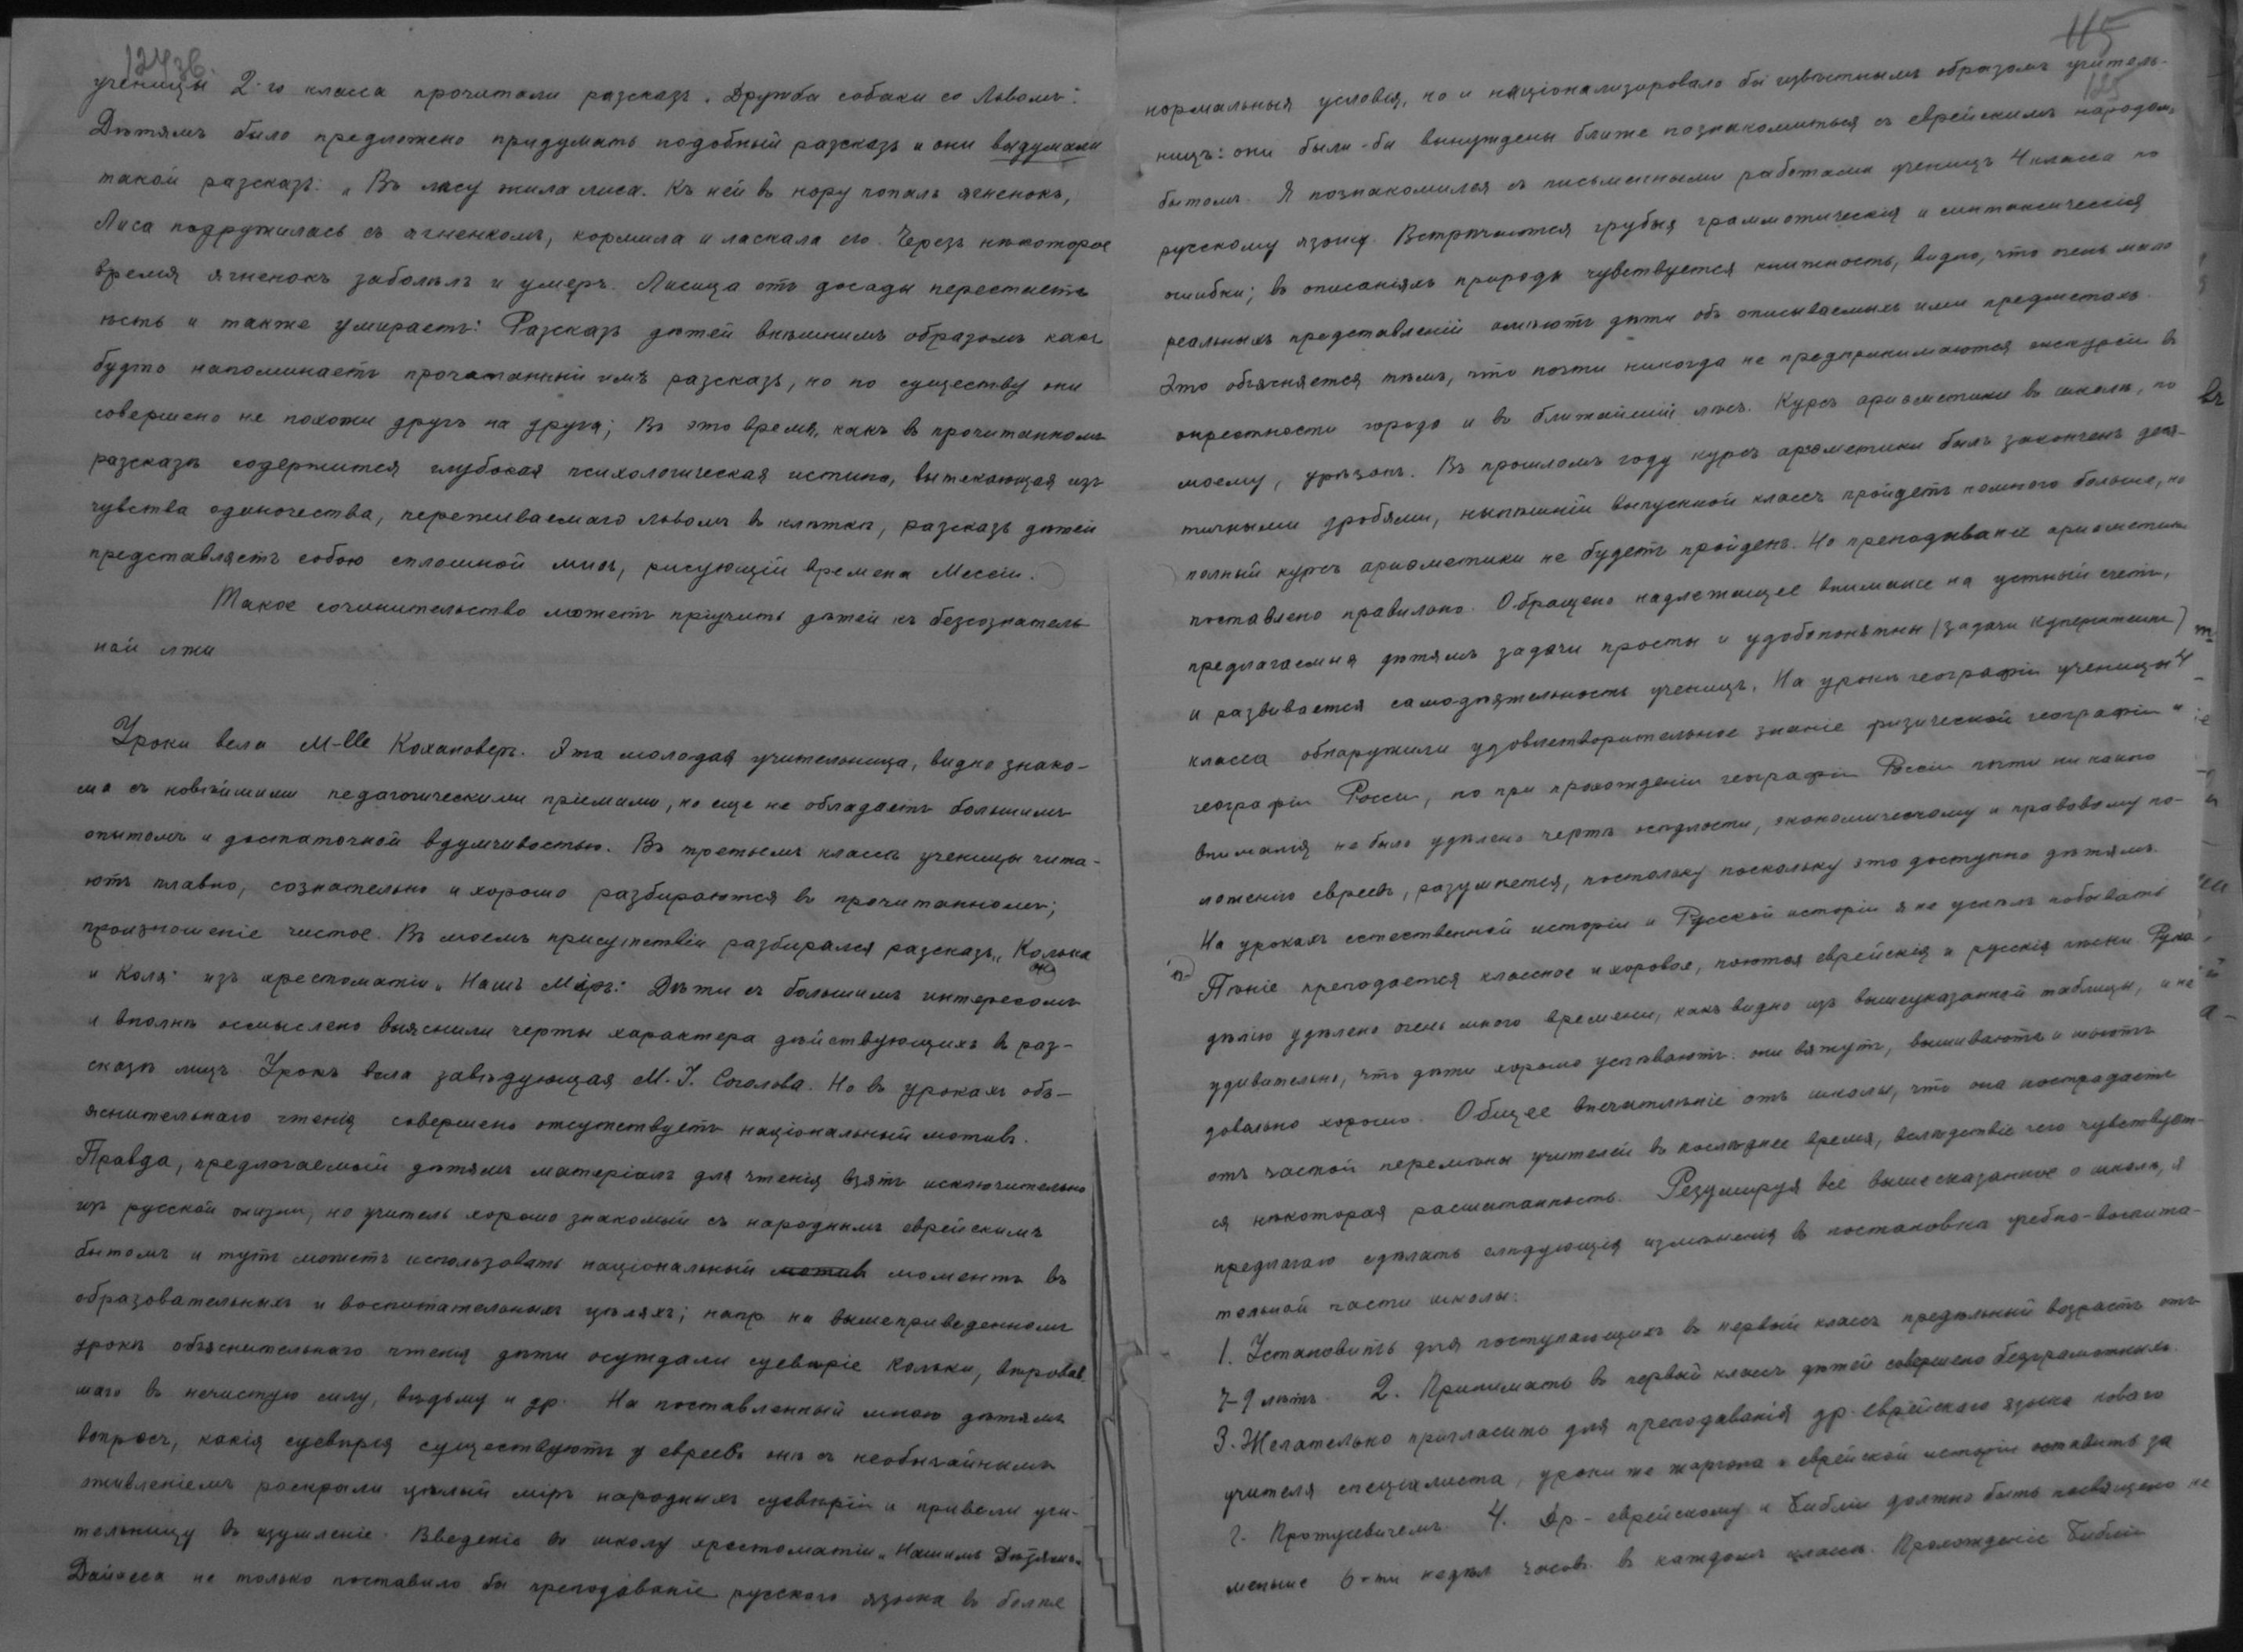 124 зв.
ученицы 2-го класса прочитали разсказъ „Дружба собаки со Львомъ“.
Дѣтямъ было предложено придумать подобный разсказъ и они выдумали
такой разсказъ: „Въ лѣсу жила лиса. Къ ней въ нору попалъ ягненокъ,
Лиса подружилась съ ягненкомъ, кормила и ласкала его. Черезъ нѣкоторое
время ягненокъ заболѣлъ и умеръ. Лисица отъ досады перестаетъ
ѣсть и также умираетъ“. Разсказъ дѣтей внѣшнимъ образомъ какъ
будто напоминаетъ прочитанный имъ разсказъ, но по существу они
совершено не похожи другъ на друга; Въ это время, какъ въ прочитанномъ
разсказѣ содержится глубокая психологическая истина, вытекающая изъ
чувства одиночества, переживаемаго львомъ въ клѣткѣ, разсказъ дѣтей
представляетъ собою сплошной миѳъ, рисующій времена Мессіи.
Такое сочинительство можетъ пріучить дѣтей къ безсознатель
ной лжи
Уроки вела M-lle Кохановеръ. Эта молодая учительница, видно знако-
ма съ новѣйшими педагогическими пріемами, но еще не обладаетъ большимъ
опытомъ и достаточной вдумчивостью. Въ третьемъ классѣ ученицы чита-
ютъ плавно, сознательно и хорошо разбираются въ прочитанномъ;
произношеніе чистое. Въ моемъ присутствіи разбирался разсказъ „Колька
и Коля“ изъ хрестоматіи „Нашъ Міръ“. Дѣти съ большимъ интересомъ
и вполнѣ осмыслено выяснили черты характера дѣйствующихъ въ раз-
сказѣ лицъ. Урокъ вела завѣдующая М. І. Соколова. Но въ урокахъ объ-
яснительнаго чтенія совершено отсутствуетъ національный мотивъ.
Правда, предлагаемый дѣтямъ матеріалъ для чтенія взятъ исключительно
изъ русской жизни, но учитель хорошо знакомый съ народнымъ еврейскимъ
бытомъ и тутъ можетъ использовать національный мотив моментъ въ
образовательныхъ и воспитательныхъ цѣляхъ; напр на вышеприведенномъ
урокѣ объяснительнаго чтенія дѣти осуждали суевѣріе Кольки, вѣровав
шаго въ нечистую силу, вѣдьму и др. На поставленный мною дѣтямъ
вопросъ, какія суевѣрія существуютъ у евреевъ онѣ съ необычайнымъ
оживленіемъ раскрыли цѣлый міръ народныхъ суевѣрій и привели учи-
тельницу въ изумленіе. Введеніе въ школу хрестоматіи „Нашимъ Дѣтямъ“
не только поставило бы преподаваніе русскаго языка въ болѣе
115
125
нормальныя условія, но и націонализировало бы извѣстнымъ образомъ учитель-
ницъ: они были-бы вынуждены ближе познакомиться съ еврейскимъ народомъ
бытомъ. Я познакомился съ письменными работами ученицъ 4 класса по
русскому языку. Встрѣчаются грубыя грамматическія и синтаксическія
ошибки; въ описаніяхъ природы чувствуется книжность, видно, что очень мало
реальныхъ представленій имѣютъ дѣти объ описываемыхъ ими предметахъ.
Это объясняется тѣмъ, что почти никогда не предпринимаются экскурсіи въ
окрестности города и въ ближайшій лѣсъ. Курсъ ариѳметики въ школѣ, по
моему, урѣзанъ. Въ прошломъ году курсъ ариѳметики былъ законченъ деся-
тичными дробями, нынѣшній выпускной классъ пройдетъ немного больше, но
полный курсъ ариѳметики не будетъ пройденъ. Но преподаваніе ариѳметики
поставлено правильно. Обращено надлежащее вниманіе на устный счетъ,
предлагаемыя дѣтямъ задачи просты и удобопонятны (задачи)
и развивается самодѣятельность ученицъ. На урокѣ географіи ученицы 4
класса обнаружили удовлетворительное знаніе физической географіи и
географіи Россіи, но при прохожденіи географіи Россіи почти никакого
вниманія не было удѣлено чертѣ осѣдлости, экономическому и правовому по-
ложенію евреевъ, разумѣется, постольку поскольку это доступно дѣтямъ.
На урокахъ естественной исторіи и Русской исторіи я не успѣлъ побывать
Пѣніе преподается классное и хоровое, поются еврейскія и русскія пѣсни. Руко
дѣлію удѣлено очень много времени, какъ видно изъ вышеуказанной таблицы, и не
удивительно, что дѣти хорошо успѣваютъ: они вяжутъ, вышиваютъ и шьютъ
довольно хорошо. Общее впечатлѣніе отъ школы, что она пострадаете
отъ частой перемѣны учителей въ послѣднее время, вслѣдствіе чего чувствует-
ся нѣкоторая расшатанность. Резумируя все вышесказанное о школѣ, я
предлагаю сдѣлать слѣдующія измѣненія въ постановкѣ учебно-воспита-
тельной части школы:
1. Установить для поступающихъ въ первый классъ предѣльный возрастъ отъ
7-9 лѣтъ. 2. Принимать въ первый классъ дѣтей совершено безграмотныхъ.
3. Желательно пригласить для преподаванія др. еврейскаго языка новаго
учителя спеціалиста, уроки же жаргона и еврейской исторіи оставить за
г. 4. Др-еврейскому и Библіи должно быть посвящено не
меньше 6-ти недѣл часовъ въ каждомъ классѣ. Прохожденіе Библіи